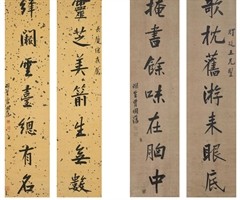 欹枕舊游來眼底
掩書餘味在胸中
靈芝美箭生無數
絳闕雲臺總有名